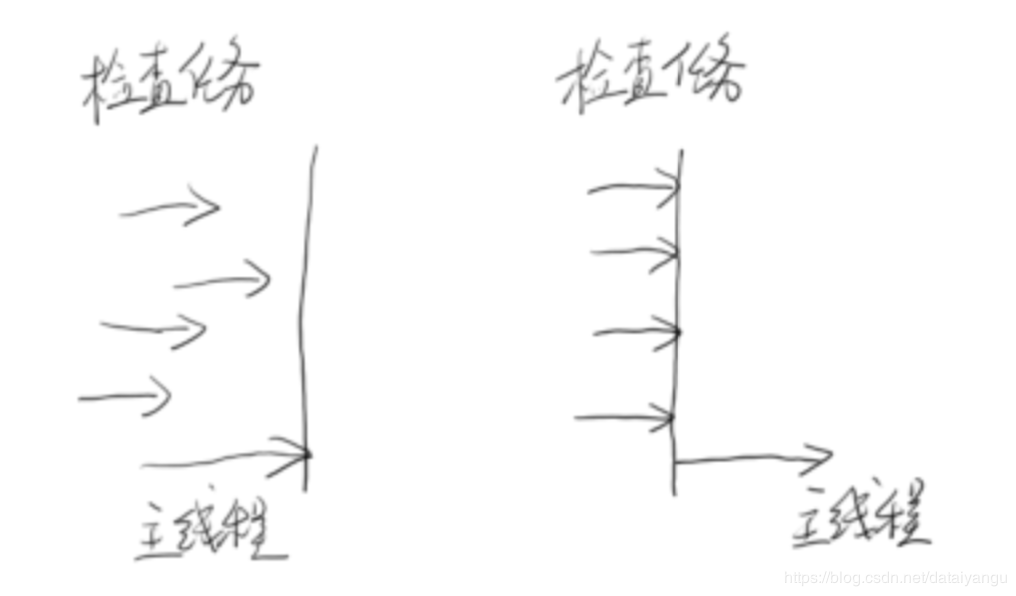 检查任务
检查任务
主线程
主线程
https://blog.csdn.net/dataiyangu